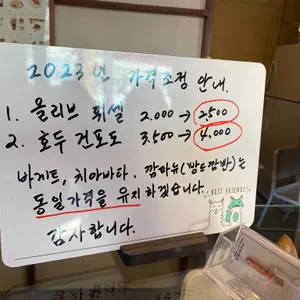 2023년 가격조정 안내.
1. 올리브 휘셀 2.000 → 2.500
2. 호두 건포도 3.500 → 4.000
바게트, 치아바타, 깜빠뉴(빵드깜빤)는
동일가격을 유지하겠습니다.
BEST FRIENDS
감사합니다.